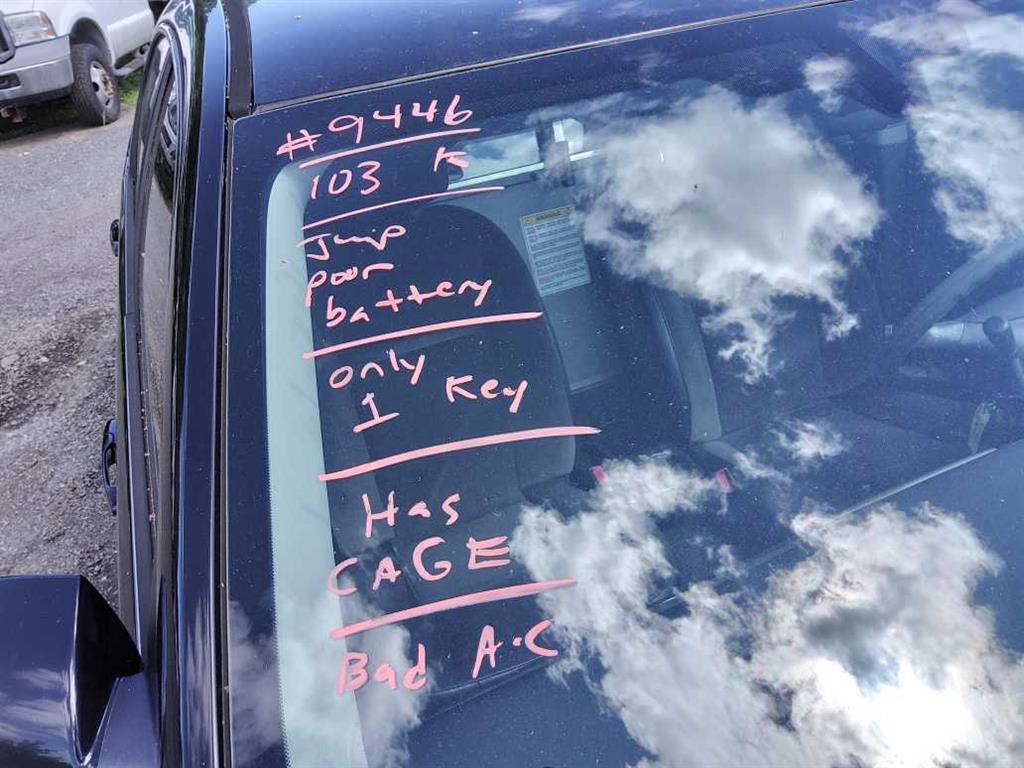 #9446
103 K
Jump
poor
battery
only
1 Key
Has
CAGE
Bad A.C
WARNING